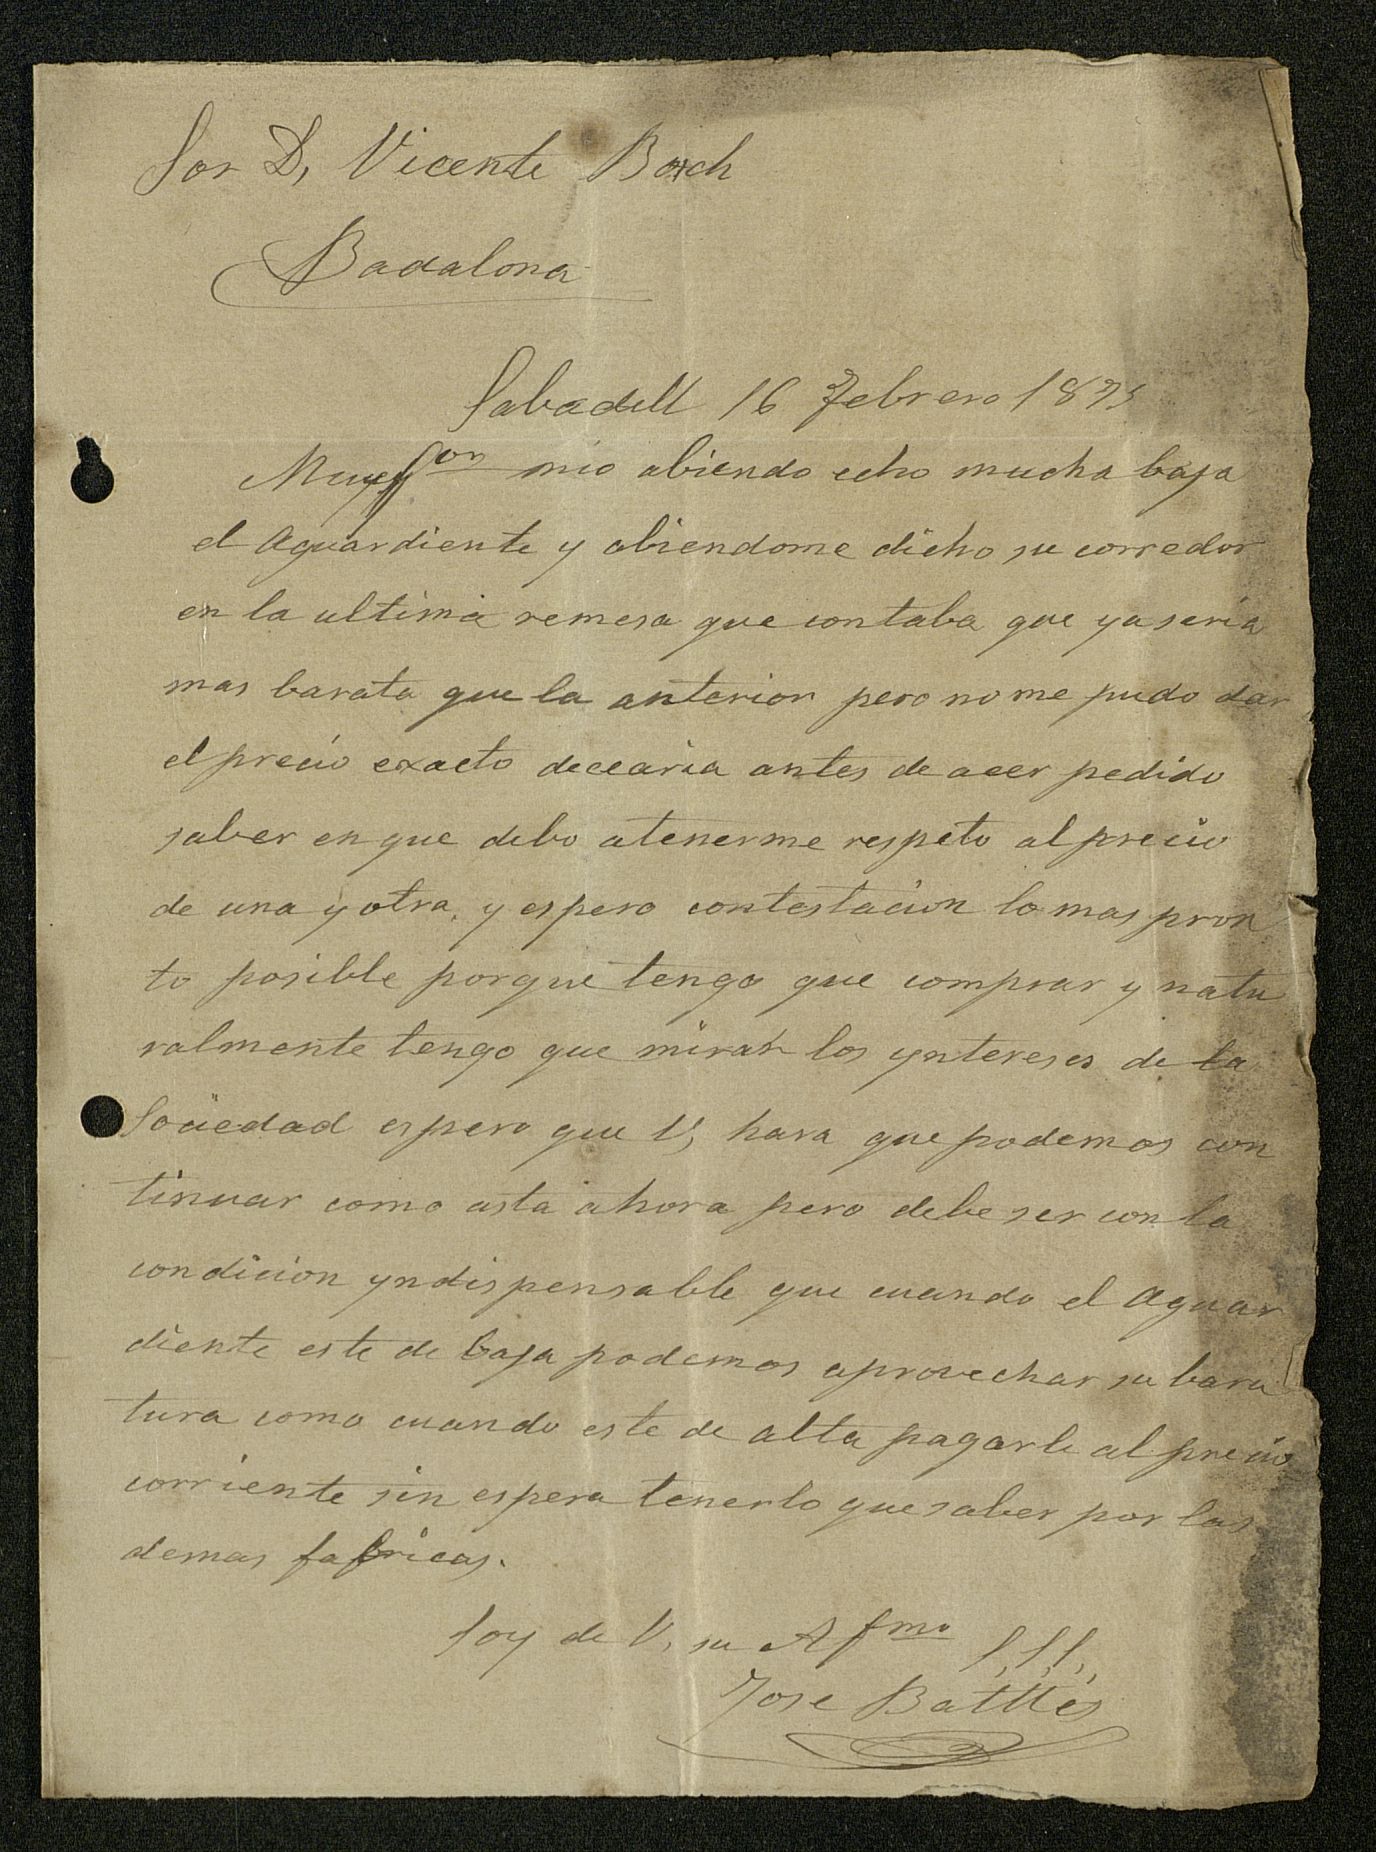 Sor D, Vicente Bosch
Badalona
Sabadell 16 Febrero 1875
Muy Sor mio abiendo echo mucha baja
el Aguardiente y abiendome dicho su corredor
en la ultima remesa que contaba que ya seria
mas barata que la anterior pero no me pudo dar
el precio exacto decearia antes de acer pedido
saber en que debo atenerme respeto al precio
de una y otra, y espero contestacion lo mas pron
to posible porque tengo que comprar y natu
ralmente tengo que mirar los yntereses de la
Sociedad espero que V, hara que podemos con
tinuar como asta ahora pero debe ser con la
condicion yndispensable que cuando el Aguar
diente este de baja podemos aprovechar su bara
tura como cuando este de alta pagarle al precio
corriente sin espera tenerlo que saber por las
demas fabricas.
Soy de V, su Afmo S,S,S,
Jose Batlles